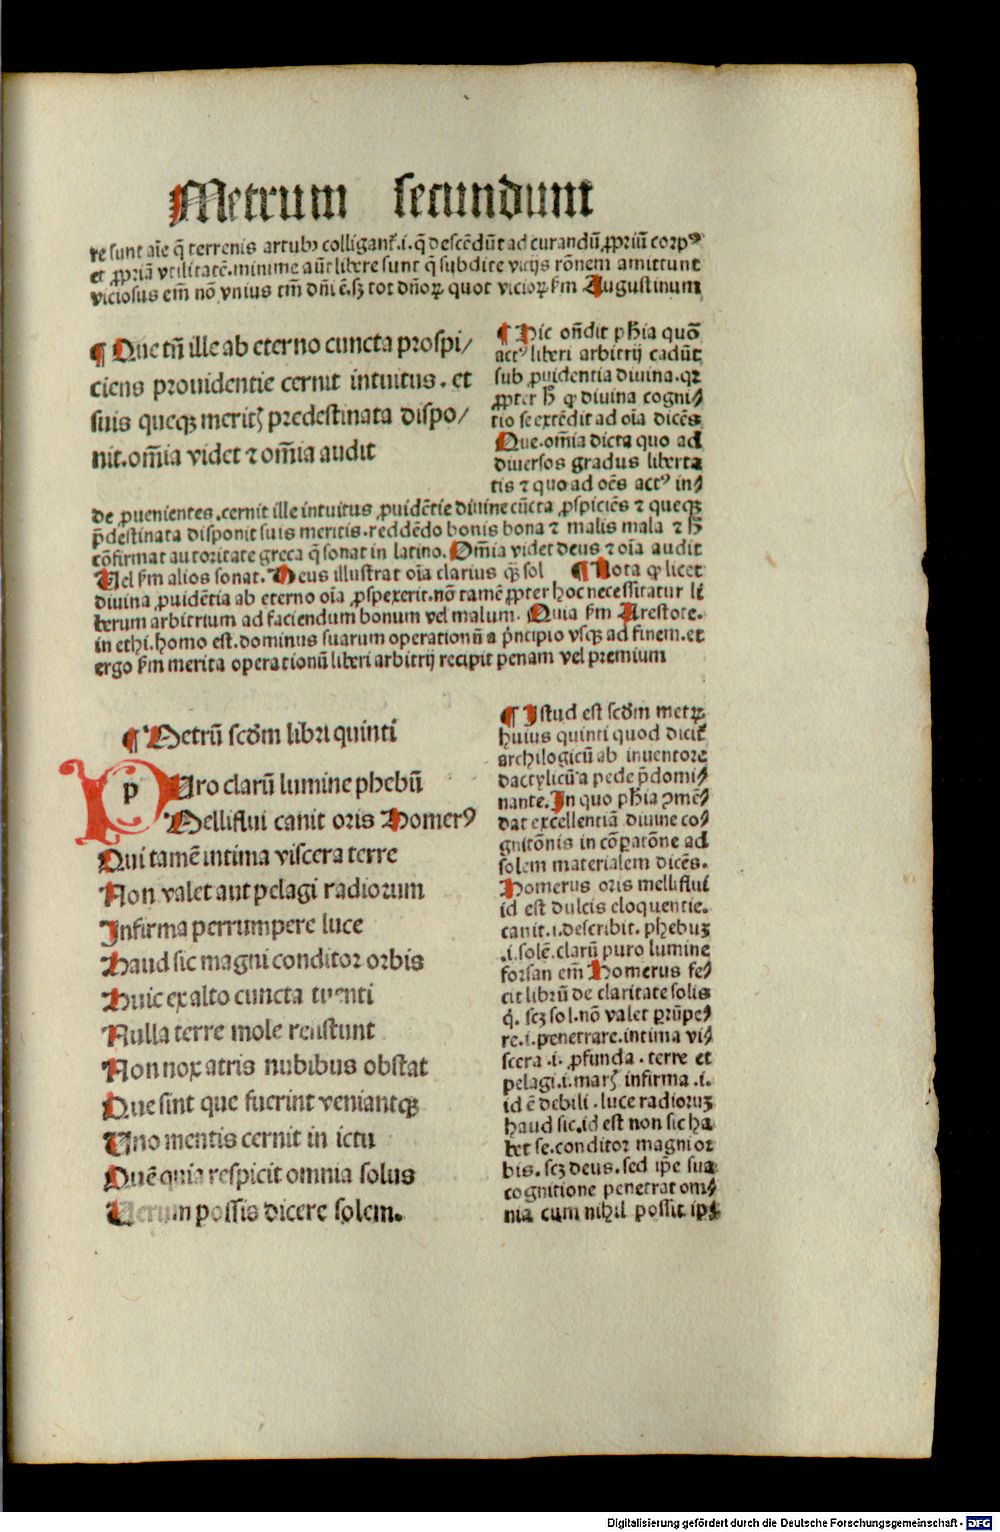 Metrum secundum
re sunt aīe q̄ terrenis artubꝫ colligant᷑.i.q̄ descēdūt ad curandū ꝓpriū corpꝰ
et ꝓpriā vtilitatē.minime aūt libere sunt q̄ subdite vicijs rōnem amittunt
viciosus em̄ nō vnius tm̄ dn̄i ē.sꝫ tot dn̄oꝝ quot vicioꝝ ẜm Augustinum
¶ Que tn̄ ille ab eterno cuncta prospi/
ciens prouidentie cernit intuitus. et
suis queqꝫ meritꝭ predestinata dispo/
nit.om̄ia videt ⁊ om̄ia audit
¶ Hic on̄dit ph̄ia quō
actꝰ liberi arbitrij cadūt
sub ꝓuidentia diuina.qꝛ
ꝓpter h̄ ꝙ diuina cogni/
tio se extēdit ad oīa dicēs
Que.om̄ia dicta quo ad
diuersos gradus liberta
tis ⁊ quo ad oēs actꝰ in/
de ꝓuenientes.cernit ille intuitus ꝓuidētie diuine cūcta ꝓspiciēs ⁊ queqꝫ
p̄destinata disponit suis meritis.reddēdo bonis bona ⁊ malis mala ⁊ h̄
cōfirmat autoritate greca q̄ sonat in latino. Om̄ia videt deus ⁊ oīa audit
Vel ẜm alios sonat. Deus illustrat oīa clarius qꝫ̄ sol ¶ Nota ꝙ licet
diuina ꝓuidētia ab eterno oīa ꝓspexerit.nō tamē ꝓpter hoc necessitatur li
berum arbitrium ad faciendum bonum vel malum. Quia ẜm Arestote.
in ethi.homo est.dominus suarum operationū a p̄ncipio vsqꝫ ad finem.et
ergo ẜm merita operationū liberi arbitrij recipit penam vel premium
¶ Metrū scd̄m libri quinti
p
Uro clarū lumine phebū
Melliflui canit oris Homerꝰ
Qui tamē intima viscera terre
Non valet aut pelagi radiorum
Infirma perrumpere luce
Haud sic magni conditor orbis
Huic ex alto cuncta tuenti
Nulla terre mole resistunt
Non nox atris nubibus obstat
Que sint que fuerint veniantqꝫ
Uno mentis cernit in ictu
Quē quia respicit omnia solus
Uerum possis dicere solem.
¶ Istud est scd̄m metꝝ
huius quinti quod dicit᷑
archilogicū ab inuentore
dactylicū a pede p̄domi/
nante. In quo ph̄ia ꝯmē/
dat excellentiā diuine co/
gnitōnis in cōꝑatōne ad
solem materialem dicēs.
Homerus oris melliflui
id est dulcis eloquentie.
canit.i.describit. phebuꝫ
.i.solē.clarū puro lumine
forsan em̄ Homerus fe/
cit librū de claritate solis
q̇. scꝫ sol.nō valet ꝑrūpe/
re.i.penetrare.intima vi/
scera .i. ꝓfunda . terre et
pelagi.i.marꝭ infirma .i.
id ē debili . luce radioruꝫ
haud sic.id est non sic ha
bet se.conditor magni or
bis. scꝫ deus. sed ip̄e sua
cognitione penetrat om/
nia cum nihil possit ipī
Digitalisierung gefördert durch die Deutsche Forschungsgemeinschaft - DFG